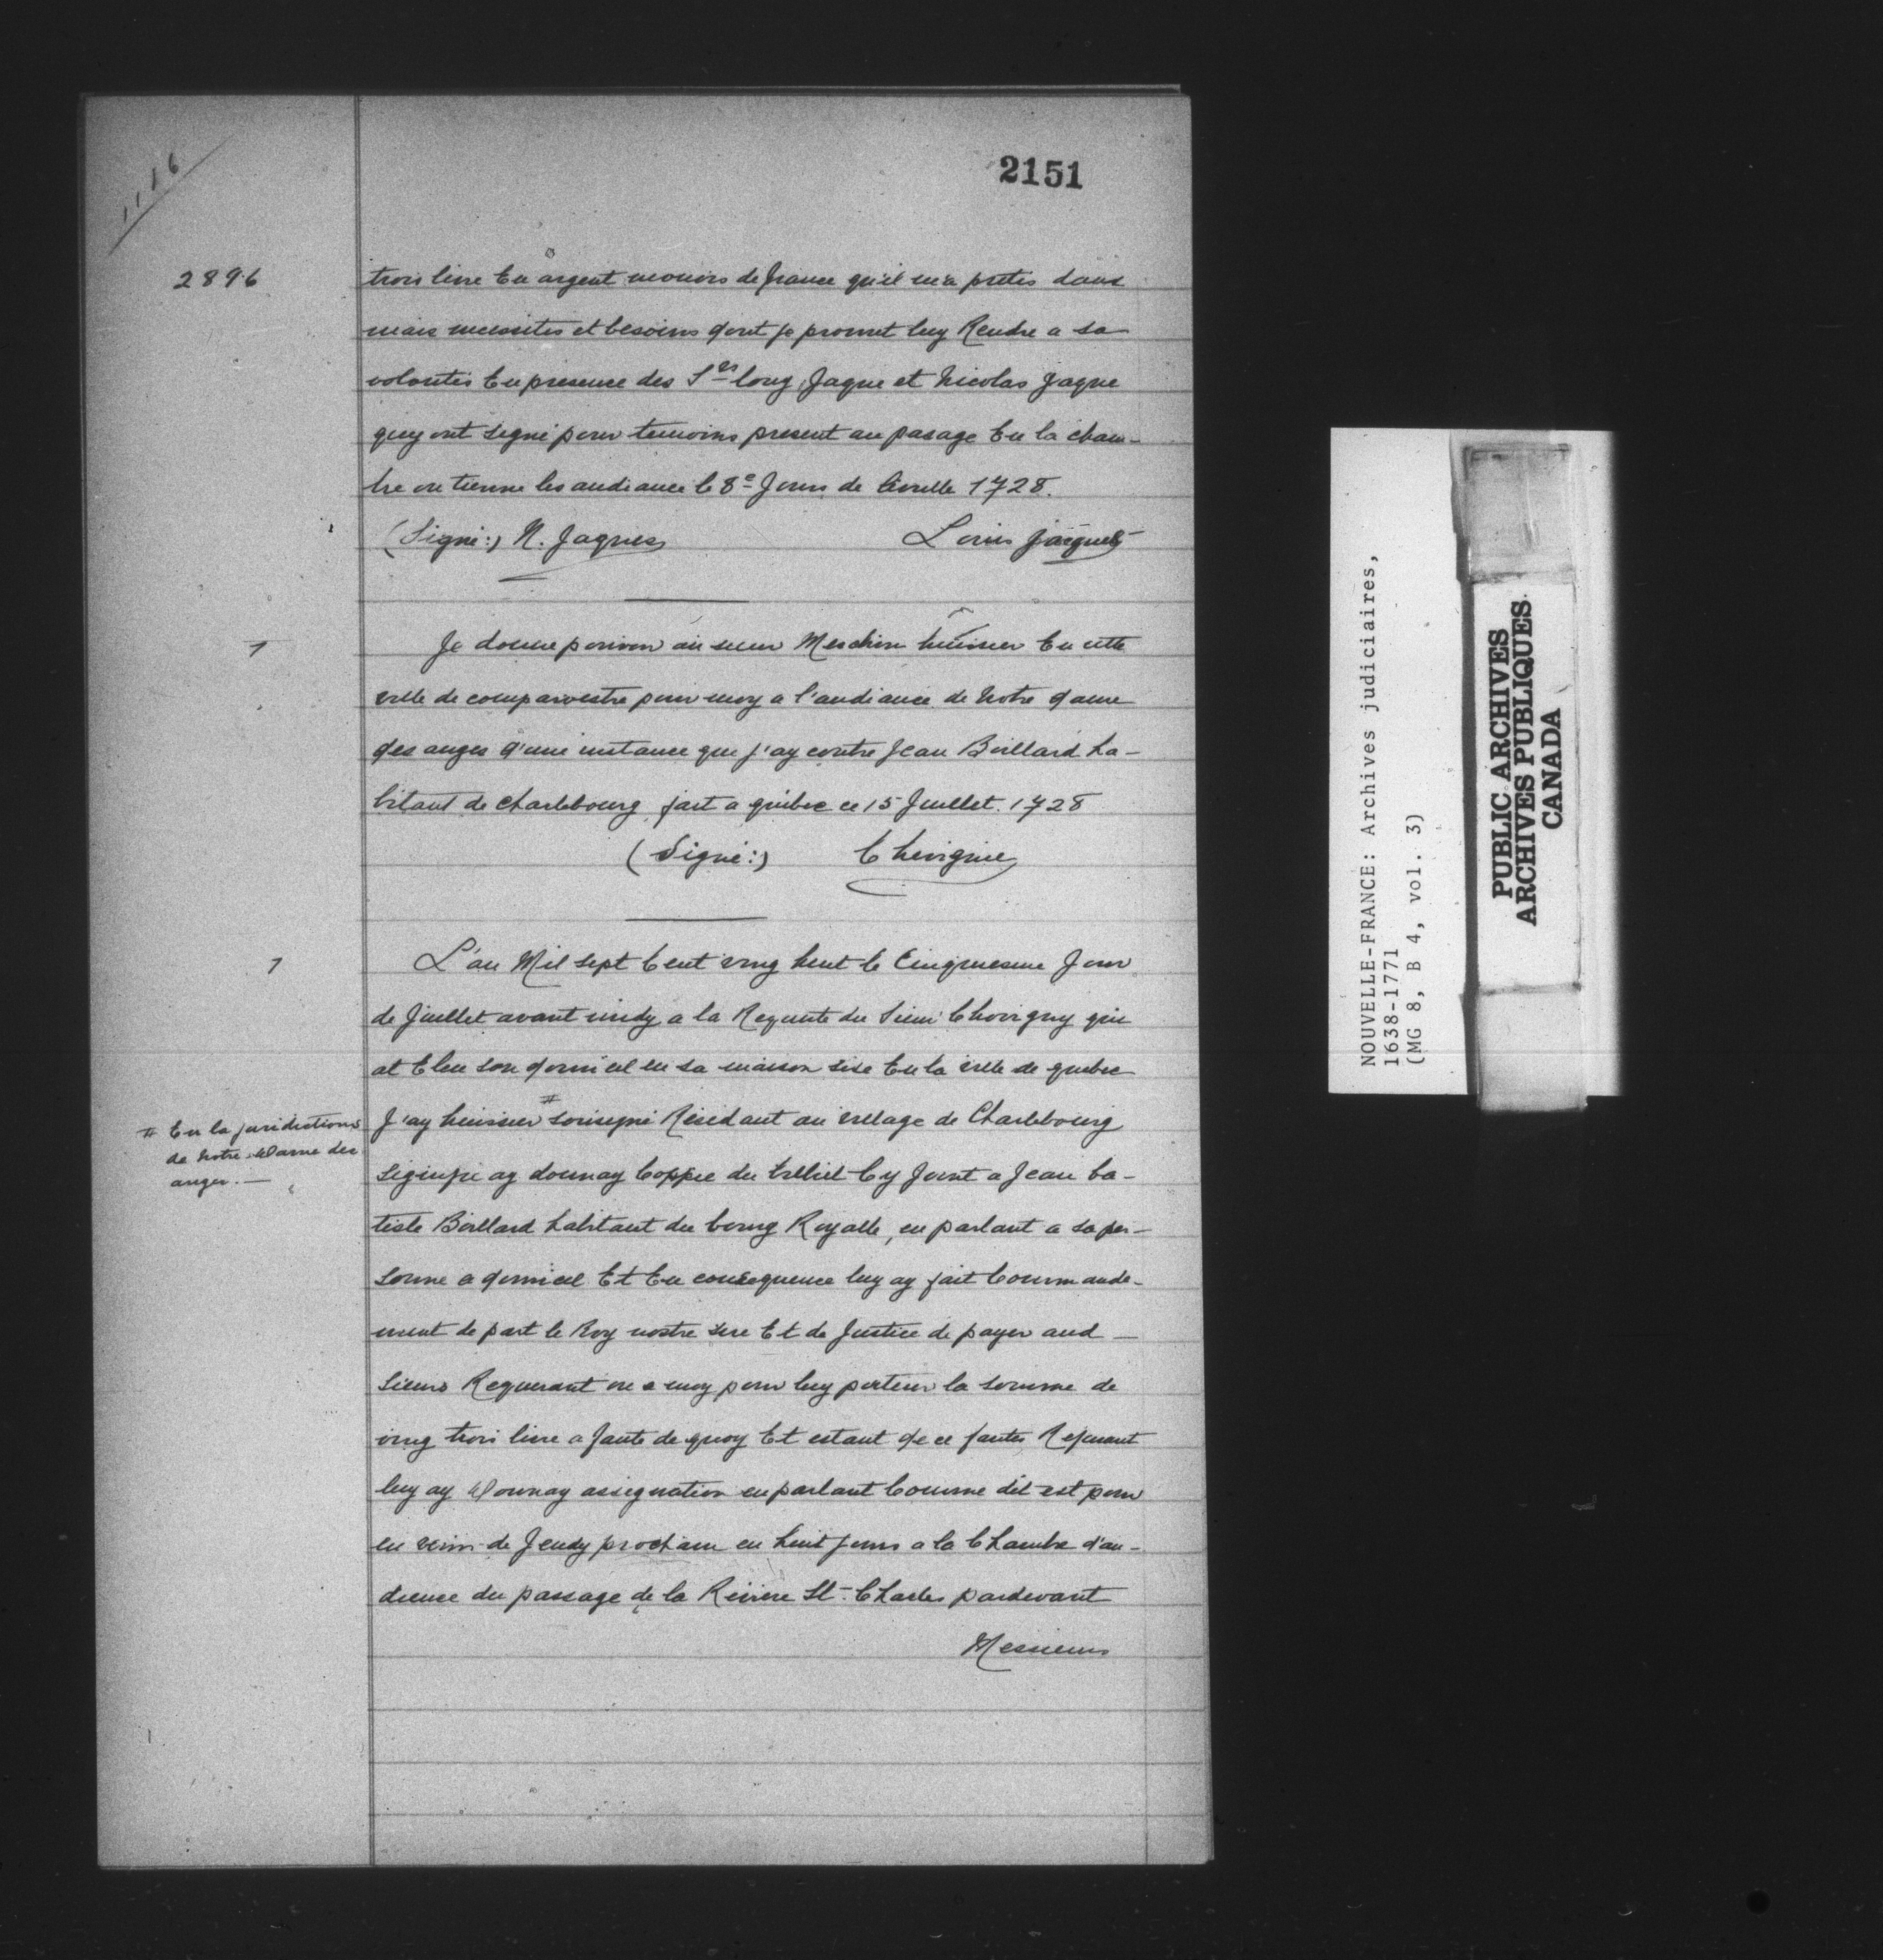 1116
2151
2896
trois livre En argent monois de france qu'il m'a pretés dans
mais necessites et besoins dont je promet luy Rendre a sa
volontés En presence des Srs louy Jaque et Nicolas Jaque
quy ont signé pour temoins present au pasage En la cham-
bre ou tienne les audiance le 8e Jours de Avrille 1728.
(Signé:) N. Jaques Louis jacques
1
Je donne pouvoir au sieur Meschin huissier En cette
ville de comparoestre pour moy a l'audiance de Notre dame
des anges d'une instance que j'ay contre Jean Boillard ha-
bitant de charlebourg fait a quebec ce 15 Juillet 1728
(Signé:) Chevignie
1
L'an Mil sept Cent ving heut le Cinquesme Jour
de Juillet avant midy a la Requete du Sieur Chovigny qui
at Eleu son domicil en sa maison sise En la ville de quebec
J'ay huissier # sousigné Résidant au village de Charlebourg
# En la juridictions
de Notre Dame des
anges.—
signifié ay donnay Coppie du billiet Cy Joint a Jean ba-
tiste Boillard habitant du bourg Royalle, en parlant a sa per-
sonne a domicil Et En consequence luy ay fait Commande-
ment de part le Roy nostre sire Et de Justice de payer aud—
sieurs Requerant ou a moy pour luy porteur la somme de
ving trois livre a faute de quoy Et estant de ce faites Refusant
luy ay Donnay assignation en parlant Comme dit est pour
en venir de Jeudy prochain en huit jours a la Chambre d'au-
dience du passage de la Riviere St-Charles pardevant
Messieurs
NOUVELLE-FRANCE: Archives judiciaires,
1638-1771
(MG 8, B 4, vol. 3)
PUBLIC ARCHIVES
ARCHIVES PUBLIQUES
CANADA